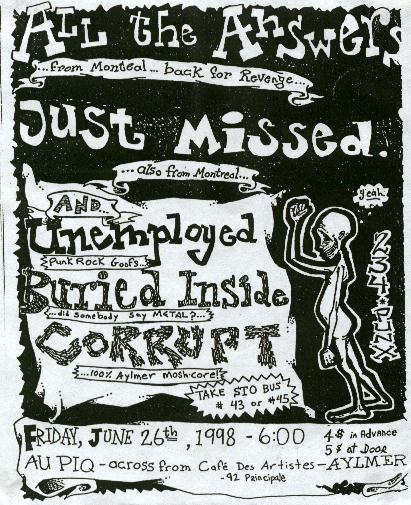 ALL the Answers
...from Montéal... back for Revenge...
Just Missed.
...also from Montreal...
yeah.
AND...
Unemployed
Punk Rock Goofs...
Buried Inside
...did somebody say METAL?...
CORRUPT
...100% Aylmer mosh-core!
234*PUNX
TAKE STO BUS
# 43 or #45
FRIDAY, JUNE 26th, 1998 - 6:00
4$ in Advance
5$ at Door
AU PIQ - across from Café Des Artistes - AYLMER
- 92 Principale